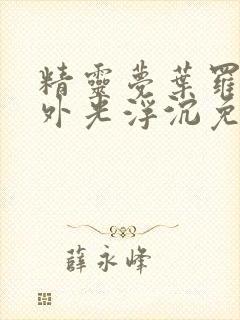 精靈夢葉羅
外光浮沉免
薛永峰